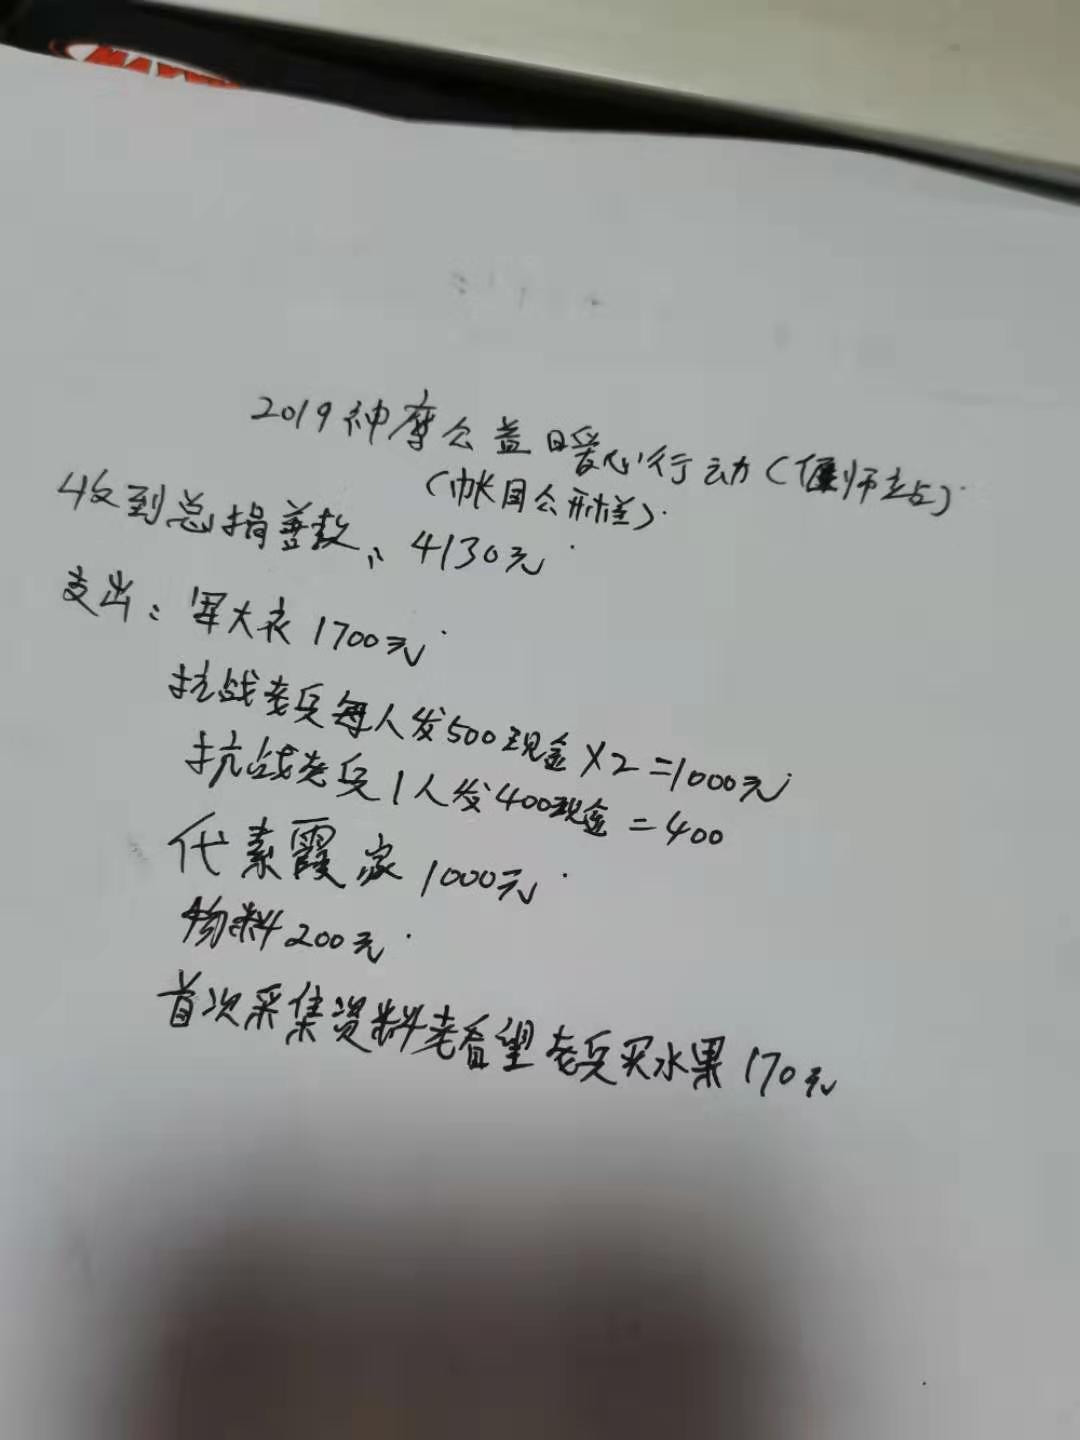 2019神摩公益日爱心行动(偃师站)
(帐目公示栏)
收到总捐善款: 4130元
支出: 军大衣1700元
抗战老兵每人发500现金×2=1000元
抗战老兵1人发400现金=400
代素霞家1000元
物料200元
首次采集资料看望老兵买水果170元